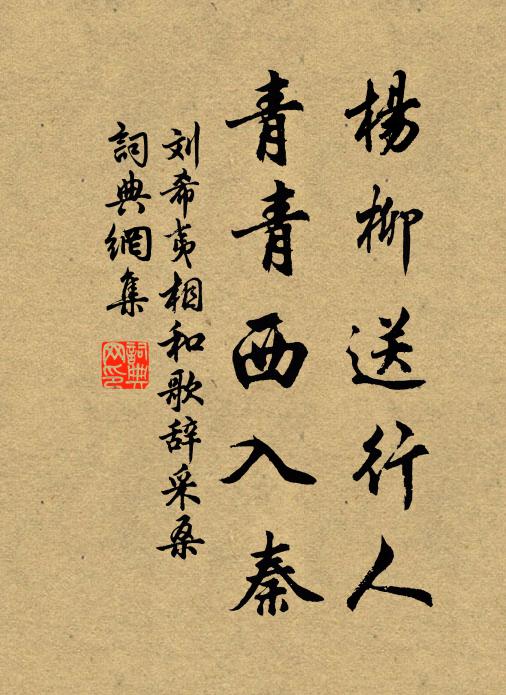 楊柳送行人
青青西入秦
刘希夷相和歌辞采桑
詞典網集
詞典网印